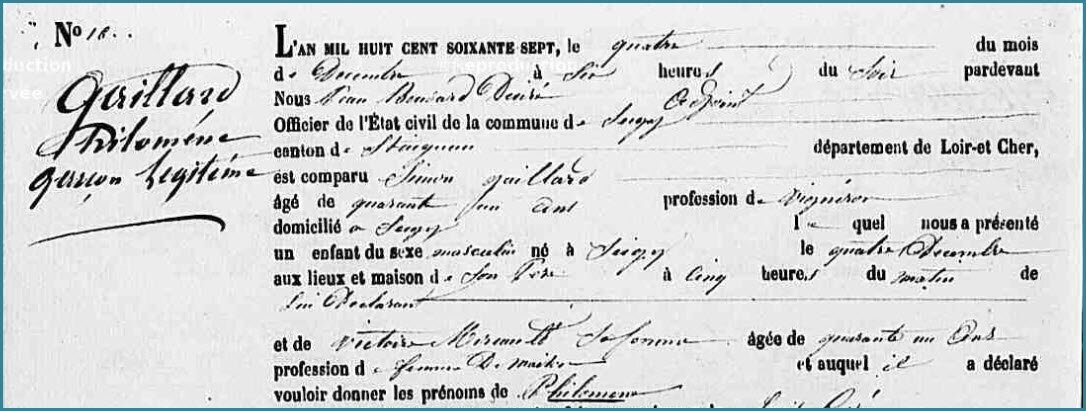 No 18.
Gaillard
Philomène
garçon legitime
L'AN MIL HUIT CENT SOIXANTE SEPT, le quatre du mois
de Decembre à Six heures du Soir pardevant
Nous Jean Désiré Adjoint
Officier de l'État civil de la commune de Seigy
canton de St aignan département de Loir-et Cher,
est comparu Simon gaillard
âgé de quarant un ans profession de vigneron
domicilié a Seigy lequel nous a présenté
un enfant du sexe masculin né à Seigy le quatre Decembre
aux lieux et maison de Son Père à cinq heures du matin de
lui Declarant
et de victoire Sa femme âgée de quarante un Ans
profession d et auquel il a déclaré
vouloir donner les prénoms de Philomene